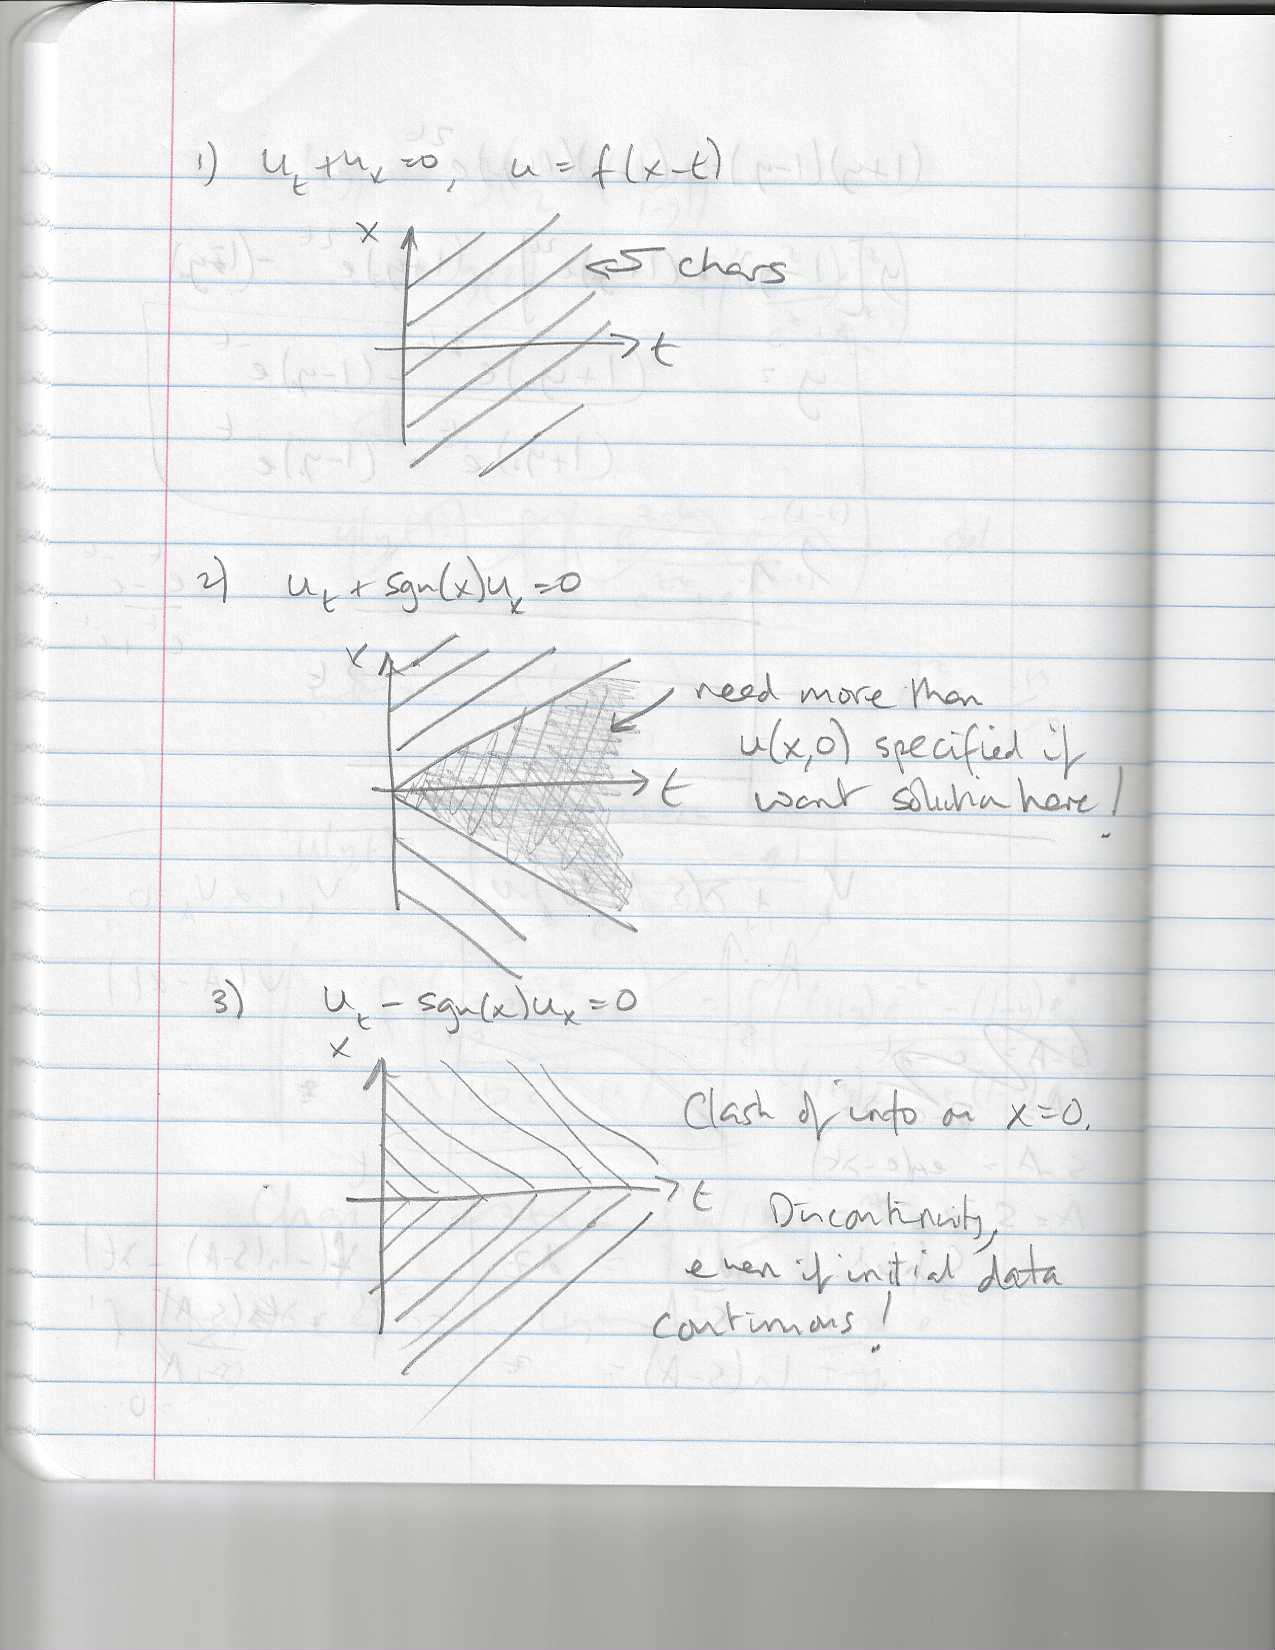 1) u_t + u_x = 0, u = f(x-t)
x
chars
t
2) u_t + sgn(x)u_x = 0
x
need more than
u(x,0) specified if
t
want solution here!
3) u_t - sgn(x)u_x = 0
x
Clash of info on x=0.
t
Discontinuity,
even if initial data
continuous!